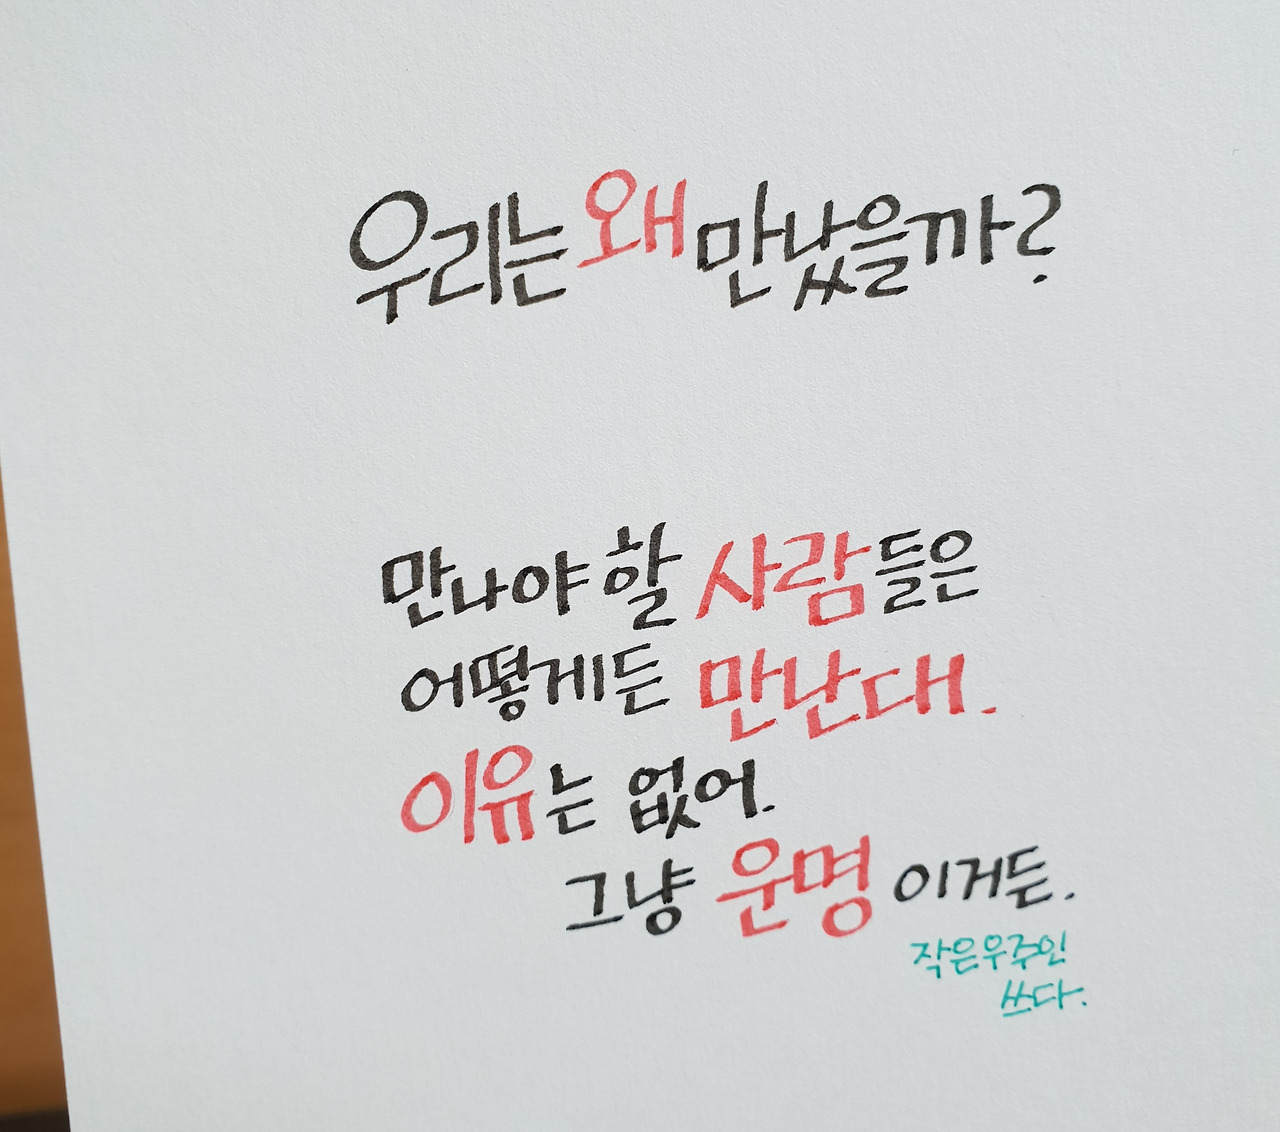 우리는 왜 만났을까?
만나야 할 사람들은
어떻게든 만난대.
이유는 없어.
그냥 운명이거든.
작은우주인
쓰다.